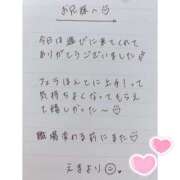 お兄様へ♡
今日は遊びに来てくれて
ありがとうございました
フェラほんとに上手!って
気持ちよくなってもらえ
て嬉しかった〜♡
職場変わる前にまた♡
えまより☺